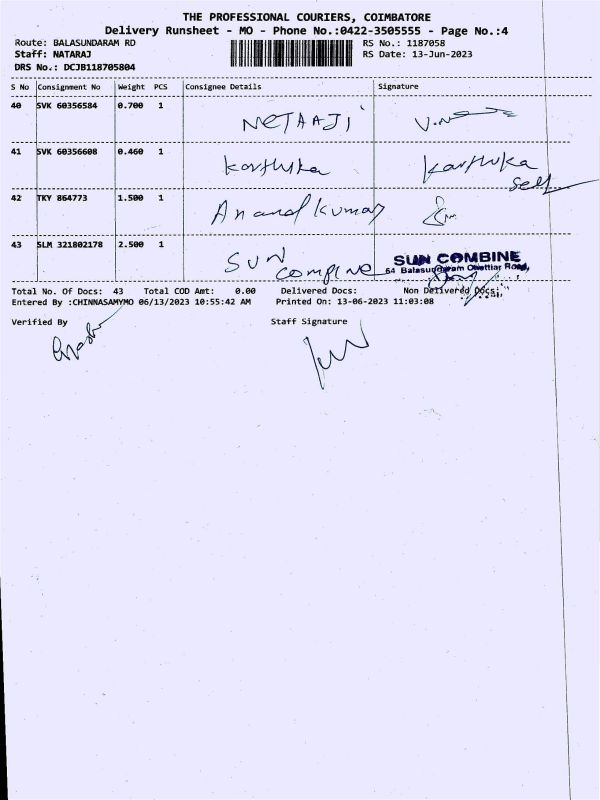 THE PROFESSIONAL COURIERS, COIMBATORE
Delivery Runsheet - MO - Phone No.:0422-3505555 - Page No.:4
Route: BALASUNDARAM RD RS No.: 1187058
Staff: NATARAJ RS Date: 13-Jun-2023
DRS No.: DCJB118705804
S No Consignment No Weight PCS Consignee Details Signature
40 SVK 60356584 0.700 1 NETAAJI
41 SVK 60356608 0.460 1 Karthika Karthika
self
42 TKY 864773 1.500 1 Anand Kumar
43 SLM 321802178 2.500 1 SUN
compine
SUN COMBINE
64 Balasundaram Chettiar Road,
Total No. Of Docs: 43 Total COD Amt: 0.00 Delivered Docs: Non Delivered Docs:
Entered By :CHINNASAMYMO 06/13/2023 10:55:42 AM Printed On: 13-06-2023 11:03:08
Verified By Staff Signature